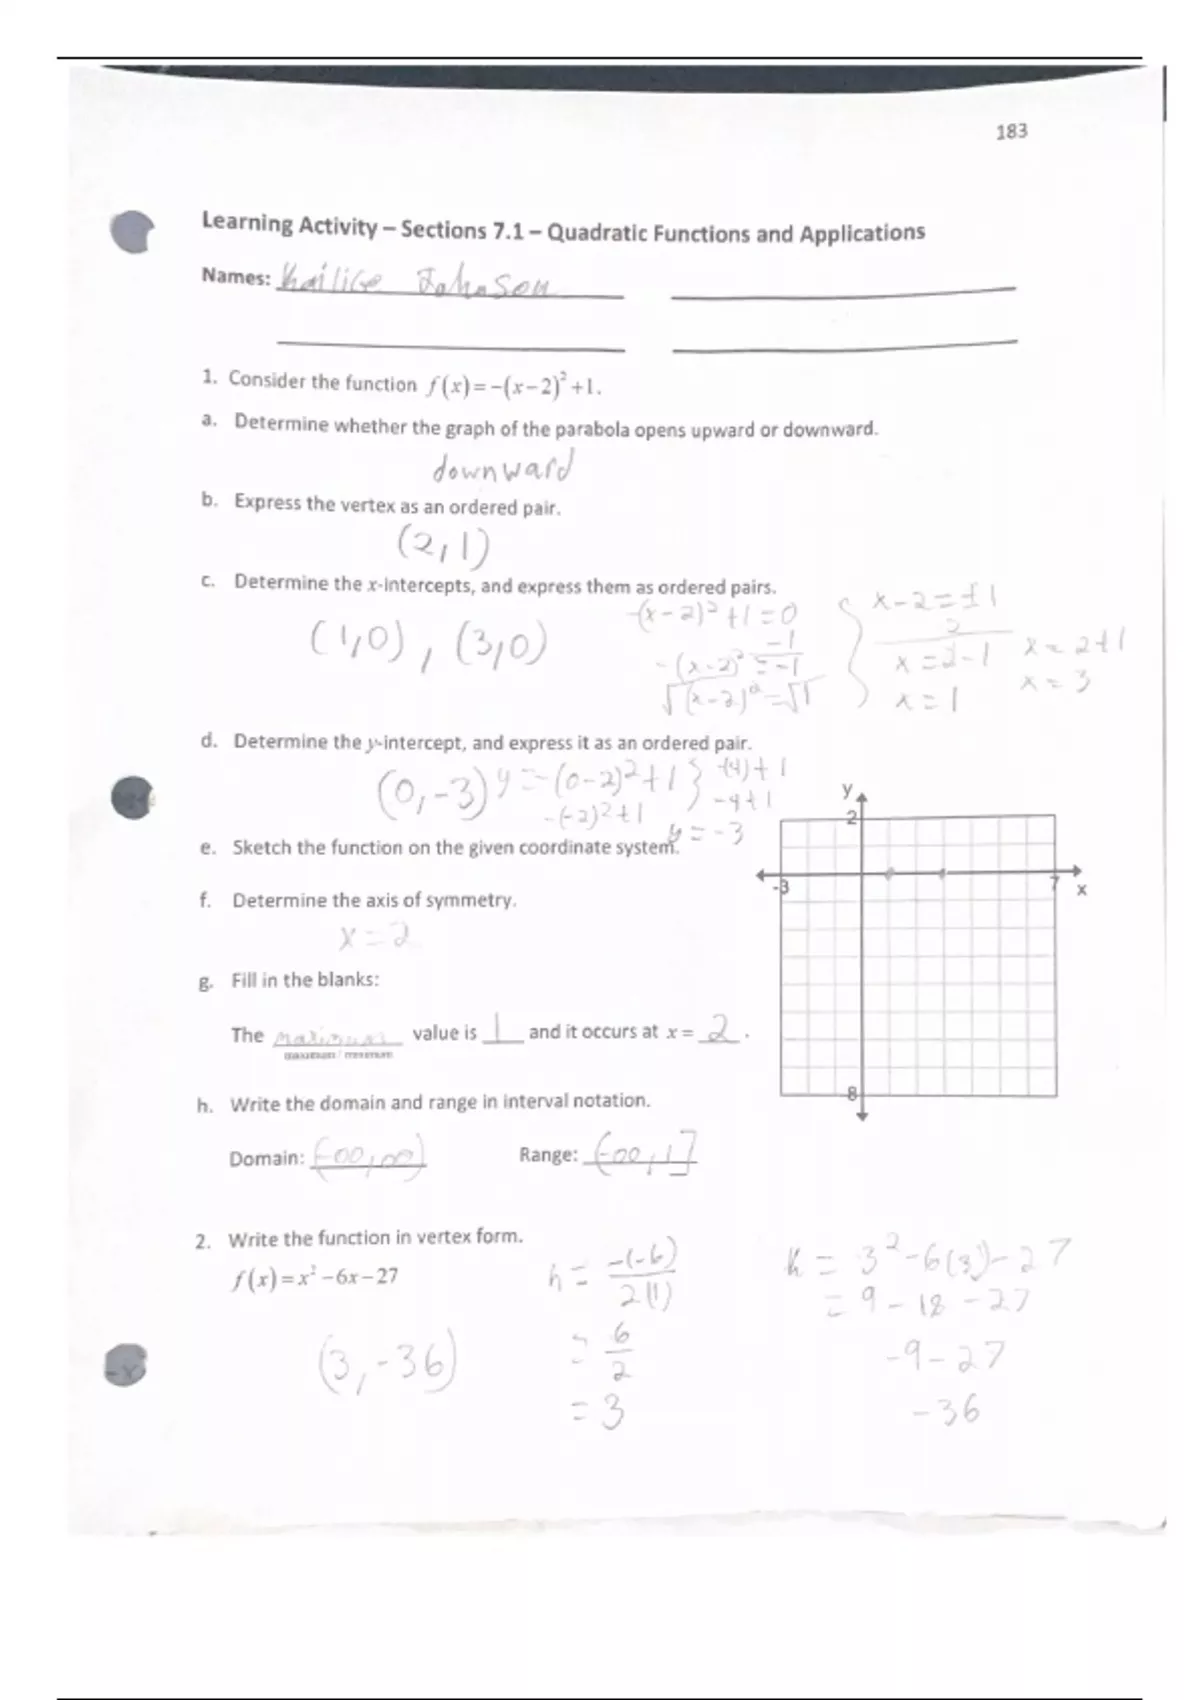 183
Learning Activity – Sections 7.1 – Quadratic Functions and Applications
Names: Johnson
1. Consider the function f(x)=-(x-2)²+1.
a. Determine whether the graph of the parabola opens upward or downward.
downward
b. Express the vertex as an ordered pair.
(2,1)
c. Determine the x-intercepts, and express them as ordered pairs.
(1,0), (3,0)
-(x-2)²+1=0
-1
-(x-2)² = -1
√(x-2)² = √1
x-2=±1
x=2-1
x=1
x=2+1
x=3
d. Determine the y-intercept, and express it as an ordered pair.
(0,-3) y=-(0-2)²+1 } -(4)+1
-(-2)²+1 -4+1
y=-3
e. Sketch the function on the given coordinate system.
y
2
-3 7 x
8
f. Determine the axis of symmetry.
x=2
g. Fill in the blanks:
The maximum value is 1 and it occurs at x = 2.
maximum / minimum
h. Write the domain and range in interval notation.
Domain: (-∞,∞) Range: (-∞,1]
2. Write the function in vertex form.
f(x)=x²-6x-27
(3,-36)
h = -(-6)
2(1)
= 6
2
= 3
k = 3²-6(3)-27
= 9-18-27
-9-27
-36